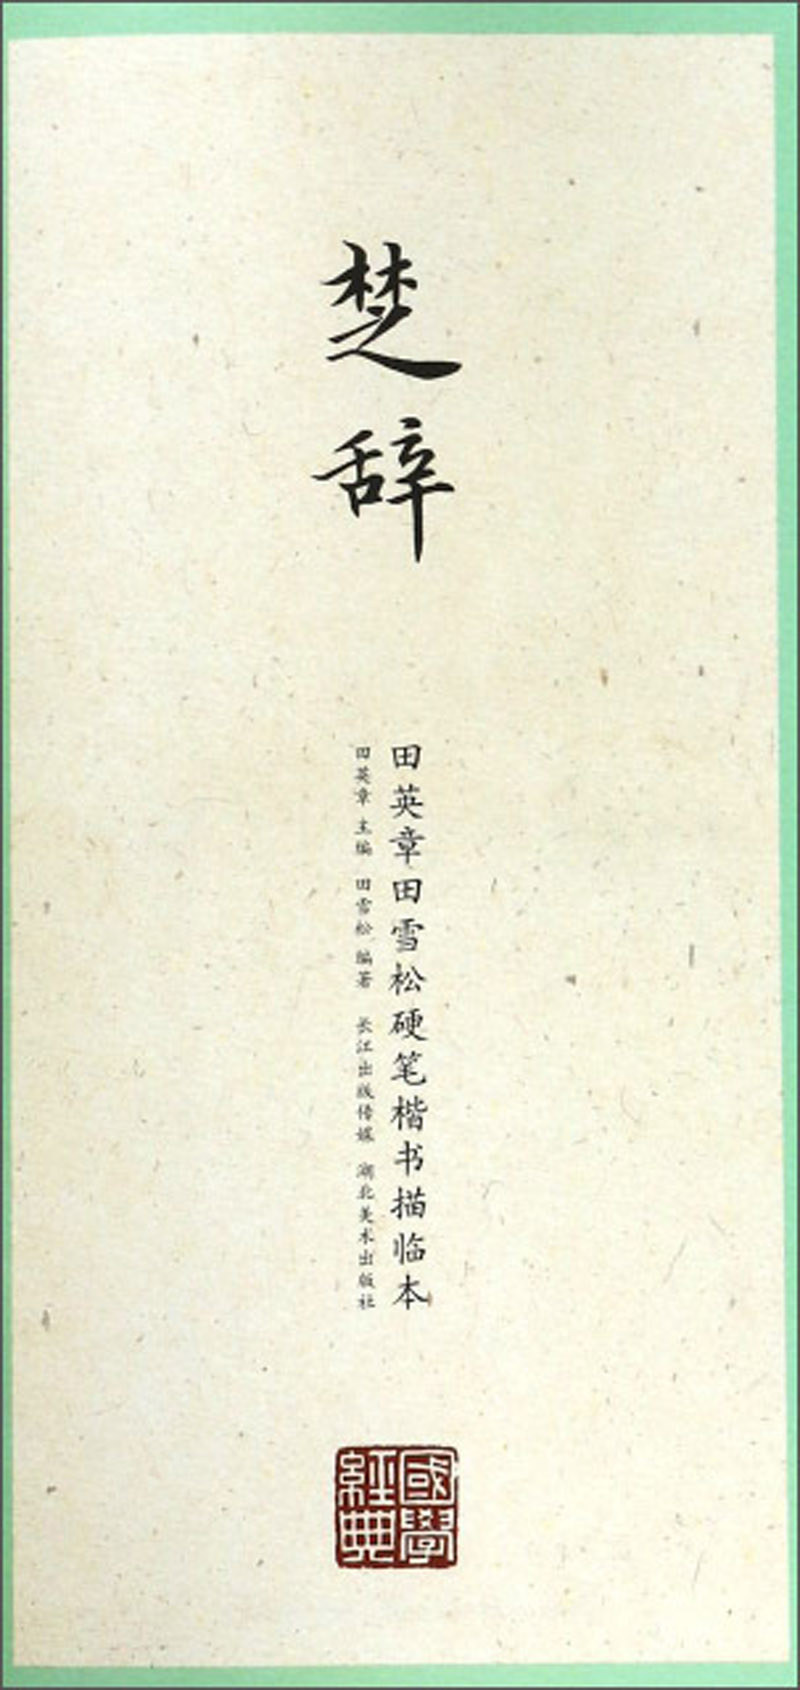 楚辞
田英章田雪松硬笔楷书描临本
田英章 主编 田雪松 编著 长江出版传媒 湖北美术出版社
國學
經典